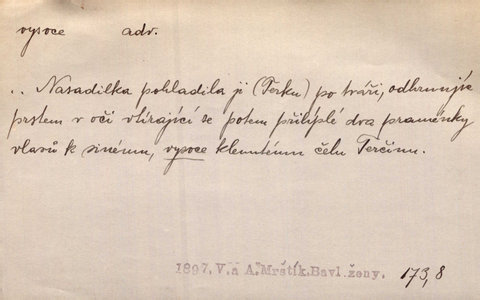 vysoce adv.
.. Nasadilka pohladila ji (Terku) po tváři, odhrnujíc
prstem v očí vtírající se potem přilíplé dva praménky
vlasů k sinému, vysoce klenutému čelu Terčinu.
1897. V. a A. Mrštík. Bavl. ženy. 173,8